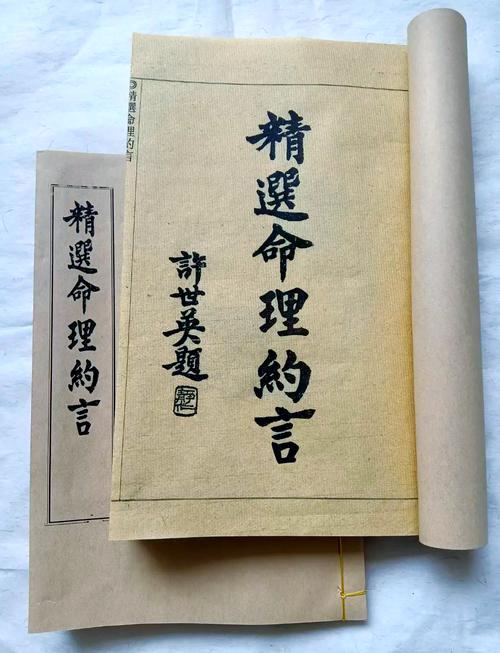 精選命理約言
許世英題
精選命理約言
精選命理約言